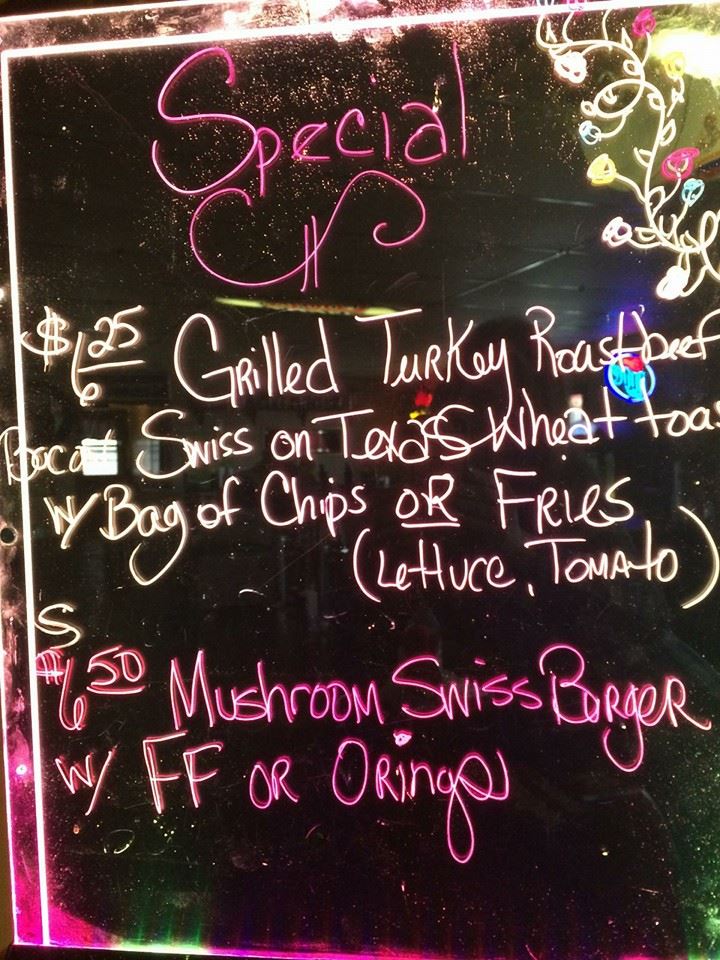 Special
$6.25 Grilled Turkey Roastbeef
Bacon Swiss on Texas Wheat toas
w/ Bag of Chips OR Fries
(Lettuce, Tomato)
S
$6.50 Mushroom Swiss Burger
w/ FF OR O Rings